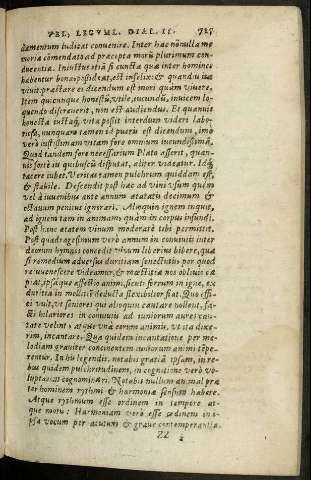 VEL, LEGVML. DIAL. II. 725
damentum iudicat conuenire. Inter hæc nõnulla me
moria cõmendato ad præcepta morũ plurimum con-
ducentia. Iniustus etiã si cuncta quæ inter homines
habentur bona possideat, est infelix: & quandiu ita
viuit. præstare ei dicendum est mori quàm viuere.
Item quicunque honestũ, vtile, iucundũ, inuicem lo-
quendo discreuerit, non est audiendus. Et quanuis
honesta iustaq́; vita possit interdum videri labo-
riosa, nunquam tamen id pueris est dicendum, imò
verò iustissimam vitam fore omnium iucundissimã.
Quod tandem fore necessarium Plato asserit, quan-
uis fortè in quibusdã disputat, aliter videatur. Idq́;
tacere iubet. Veritas tamen pulchrum quiddam est,
& stabile. Descendit post hac ad vini vsum quem
vel à iuuenibus ante annum ætatis decimum &
octauum penitus ignorari. Alioquin ignem in que,
ad ignem tam in animam quàm in corpus infundi.
Post hanc ætatem vinum moderatè tibi permittit.
Post quadragesimum verò annum in conuiuiis inter
deorum hymnos concedit vinum liberius bibere, qua
si remedium aduersus duritiam senectutis: per quod
reiuuenescere videamur, & mœstitiæ nos obliuio ca
piat, ipsaque affectio animi, sicuti ferrum in igne, ex
duritia in mollitiẽ deducta flexibilior fiat. Quo effi-
ci vult, vt seniores qui alioquin cantare nollent, fa-
cti hilariores in conuiuio ad iuniorum aures can-
tare velint: atque vnà eorum animis, vt ita dixe-
rim, incantare. Qua quidem incantatione per me-
lodiam grauiter concinentem iuniorum animi tẽpe-
rentur. In his legendis, notabis gratiã ipsam, in re-
bus quidem pulchritudinem, in cognitione verò vo-
luptatem cognominari. Notabis nullum animal præ
ter hominem rythmi & harmoniæ sensum habere.
Atque rythmum esse ordinem in tempore at-
que motu: Harmoniam verò esse ordinem in i-
psa vocum per acutum & graue contemperantia.
ZZ 3